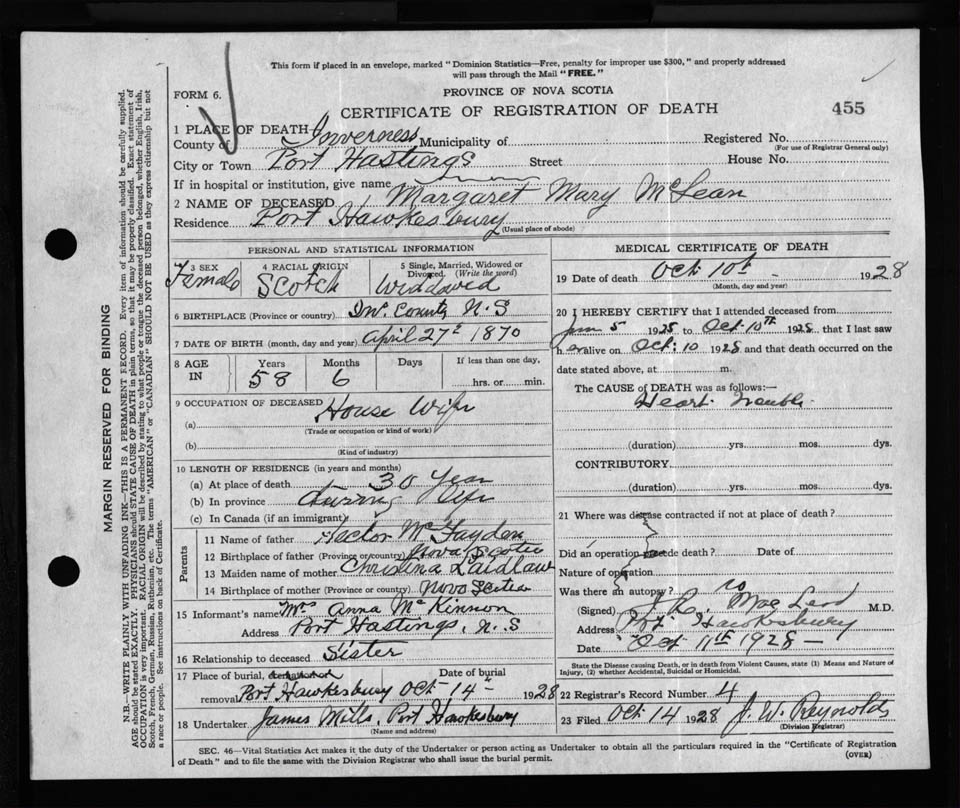 This form if placed in an envelope, marked "Dominion Statistics—Free, penalty for improper use $300," and properly addressed
will pass through the Mail "FREE."
FORM 6.
PROVINCE OF NOVA SCOTIA
CERTIFICATE OF REGISTRATION OF DEATH
455
1 PLACE OF DEATH
County of Inverness Municipality of Registered No.
(For use of Registrar General only)
City or Town Port Hastings Street House No.
If in hospital or institution, give name
2 NAME OF DECEASED Margaret Mary McLean
Residence Port Hawkesbury
(Usual place of abode)
PERSONAL AND STATISTICAL INFORMATION
3 SEX Female
4 RACIAL ORIGIN Scotch
5 Single, Married, Widowed or Divorced. (Write the word) Widowed
6 BIRTHPLACE (Province or country) Inv. County N.S
7 DATE OF BIRTH (month, day and year) April 27th 1870
8 AGE IN Years 58 Months 6 Days If less than one day, hrs. or min.
9 OCCUPATION OF DECEASED
(a) House Wife
(Trade or occupation or kind of work)
(b)
(Kind of industry)
10 LENGTH OF RESIDENCE (in years and months)
(a) At place of death 30 Year
(b) In province during life
(c) In Canada (if an immigrant)
Parents
11 Name of father Hector McFayden
12 Birthplace of father (Province or country) Nova Scotia
13 Maiden name of mother Christina Laidlaw
14 Birthplace of mother (Province or country) Nova Scotia
15 Informant's name Mrs Anna McKinnon
Address Port Hastings, N.S
16 Relationship to deceased Sister
17 Place of burial, cremation or removal Port Hawkesbury Date of burial Oct 14 1928
18 Undertaker James Mills, Port Hawkesbury
(Name and address)
MEDICAL CERTIFICATE OF DEATH
19 Date of death Oct 10th 1928
(Month, day and year)
20 I HEREBY CERTIFY that I attended deceased from
5 1928 to Oct 10th 1928 that I last saw
her alive on Oct 10 1928 and that death occurred on the
date stated above, at m.
The CAUSE of DEATH was as follows:—
Heart trouble
(duration) yrs. mos. dys.
CONTRIBUTORY
(duration) yrs. mos. dys.
21 Where was disease contracted if not at place of death?
Did an operation precede death? Date of
Nature of operation
Was there an autopsy? no
(Signed) MacLeod M.D.
Address Port Hawkesbury
Date Oct 11th 1928
State the Disease causing Death, or in death from Violent Causes, state (1) Means and Nature of Injury, (2) whether Accidental, Suicidal or Homicidal.
22 Registrar's Record Number 4
23 Filed Oct 14 1928 J. W. Reynolds
(Division Registrar)
SEC. 46—Vital Statistics Act makes it the duty of the Undertaker or person acting as Undertaker to obtain all the particulars required in the "Certificate of Registration
of Death" and to file the same with the Division Registrar who shall issue the burial permit.
(OVER)
MARGIN RESERVED FOR BINDING
N.B.—WRITE PLAINLY WITH UNFADING INK—THIS IS A PERMANENT RECORD. Every item of information should be carefully supplied.
AGE should be stated EXACTLY. PHYSICIANS should STATE CAUSE OF DEATH in plain terms, so that it may be properly classified. Exact statement of
OCCUPATION is very important. RACIAL ORIGIN will be described by stating to what people or tongue the deceased person belonged, whether English, Irish,
Scotch, French, German, Russian, Ruthenian, etc. The terms "AMERICAN" or "CANADIAN" SHOULD NOT BE USED as they express citizenship but not
a race or people. See instructions on back of Certificate.